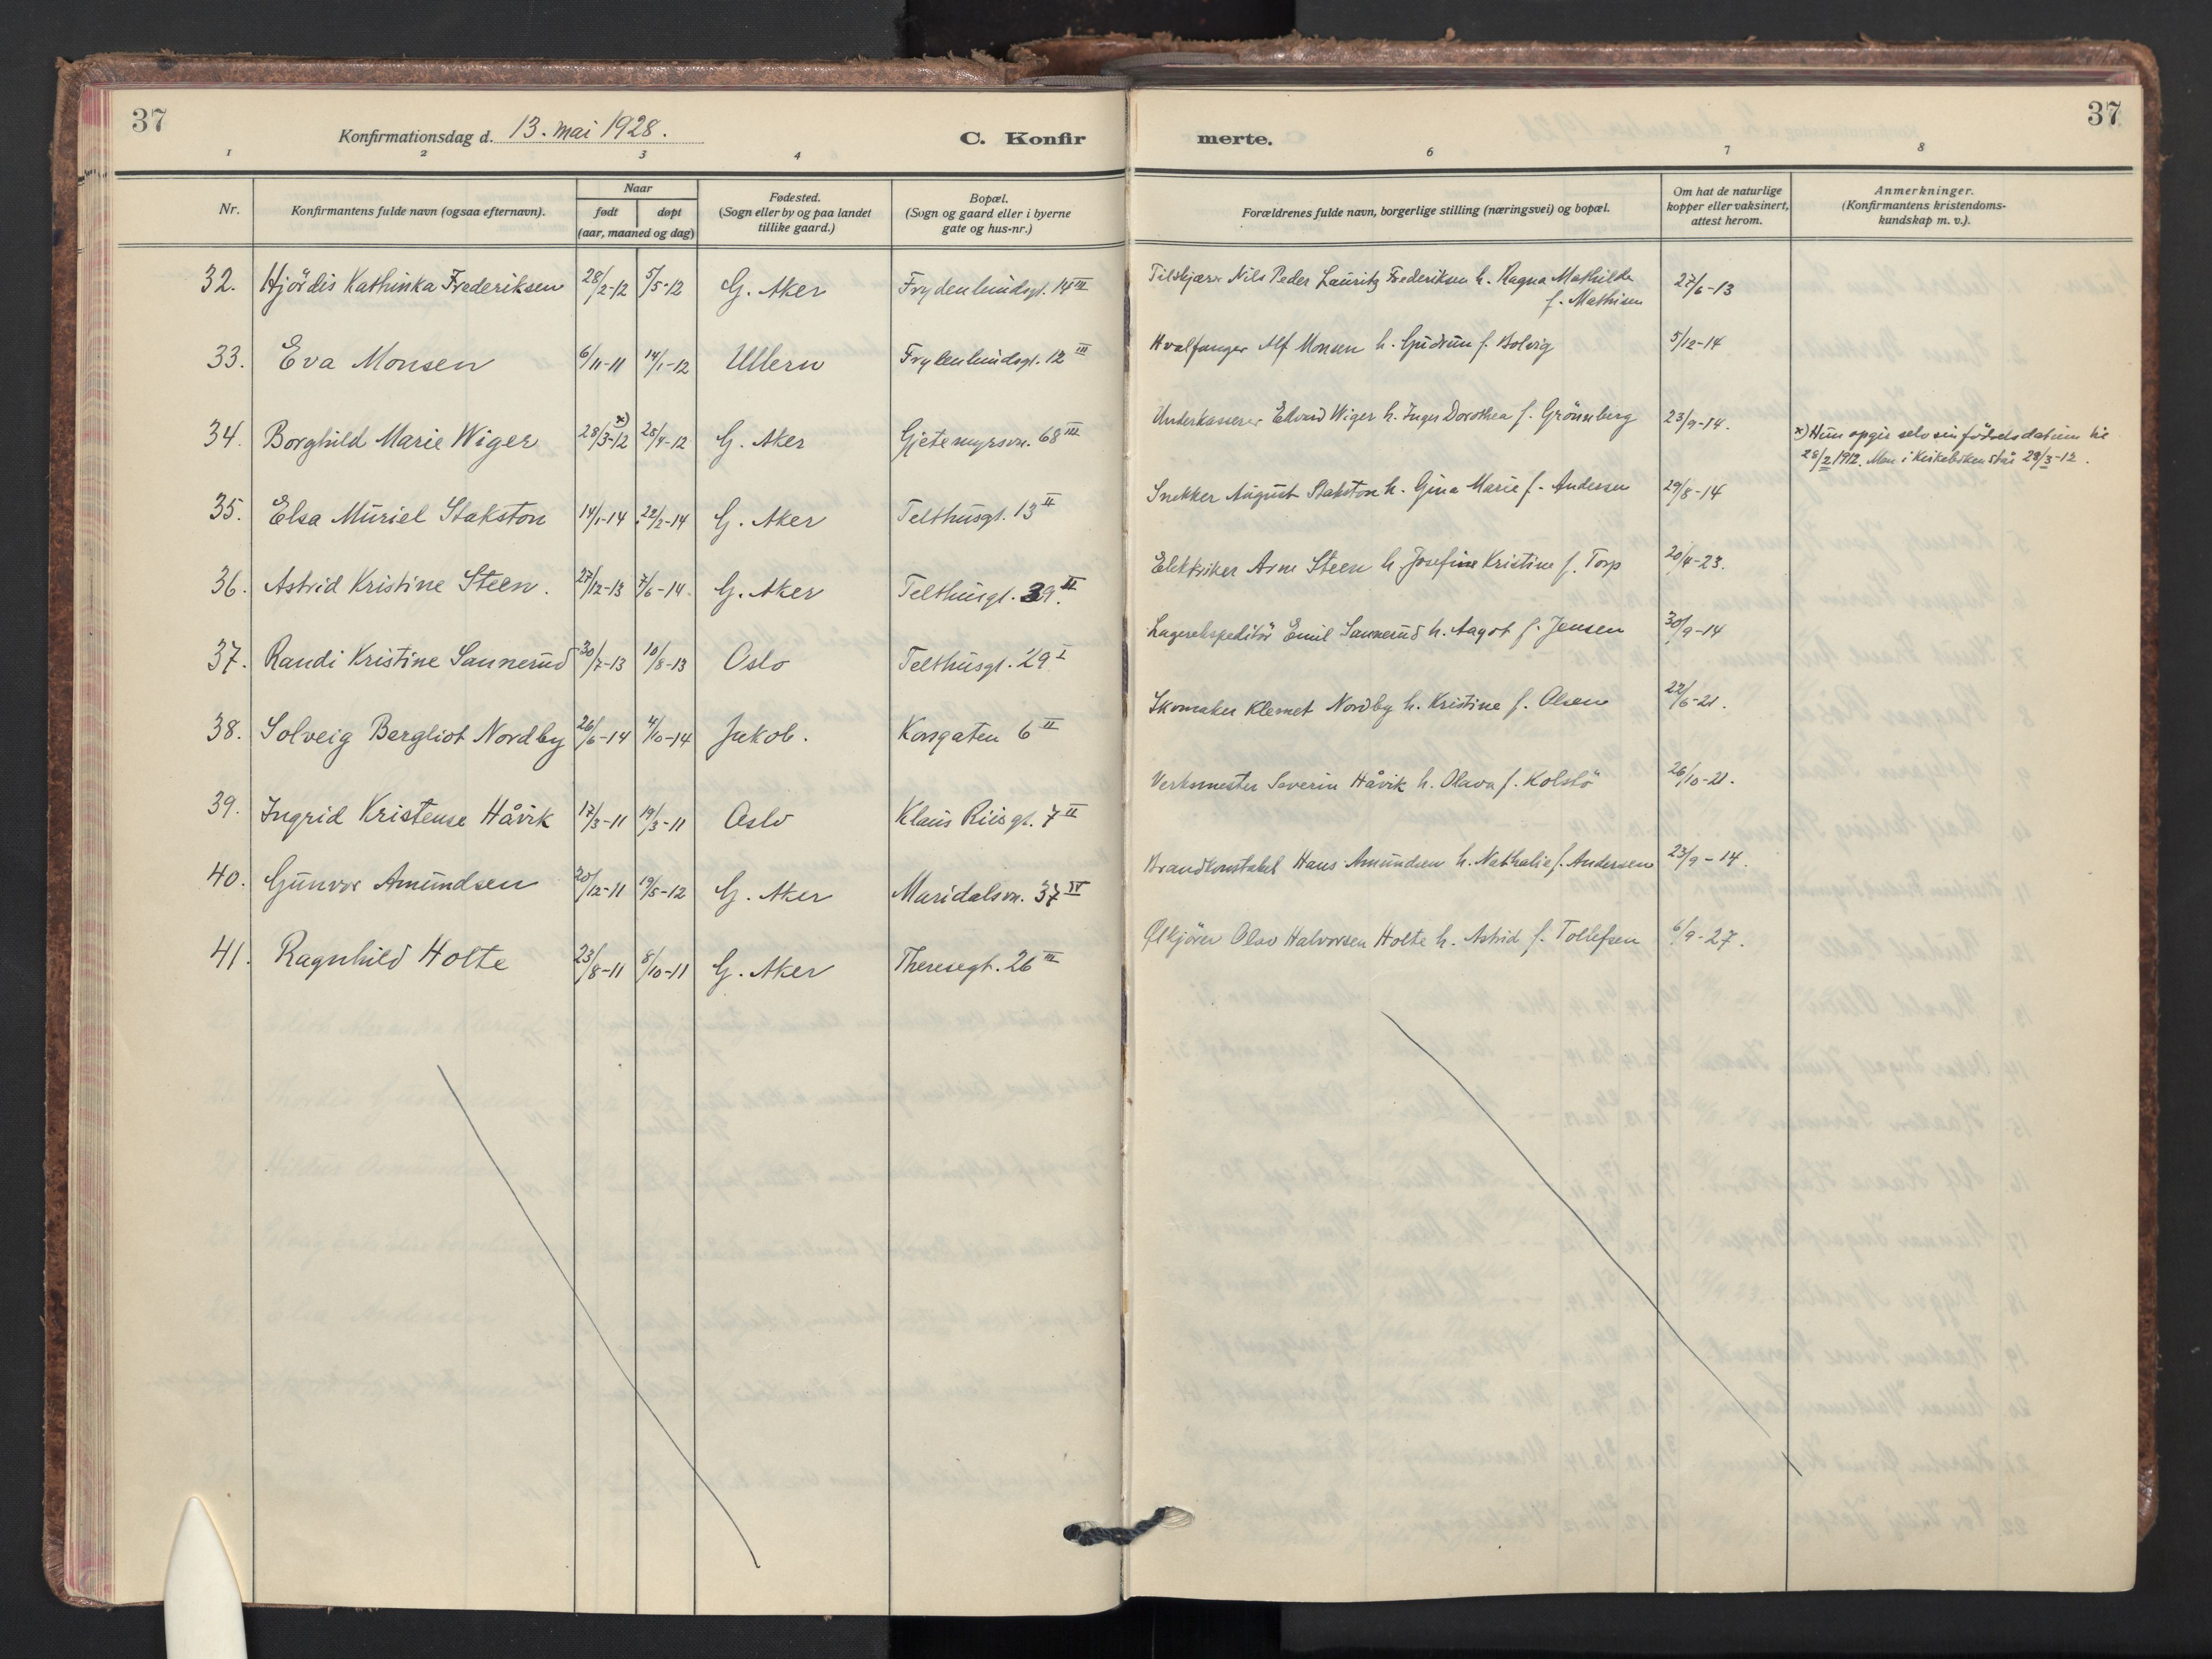 37
Konfirmationsdag d. 13. mai 1928.
C. Konfir
merte.
37
1 2 3 4 6 7 8
Nr.
Konfirmantens fulde navn (ogsaa efternavn).
Naar
født døpt
(aar, maaned og dag)
Fødested.
(Sogn eller by og paa landet
tillike gaard.)
Bopæl.
(Sogn og gaard eller i byerne
gate og hus-nr.)
Forældrenes fulde navn, borgerlige stilling (næringsvei) og bopæl.
Om hat de naturlige
kopper eller vaksinert,
attest herom.
Anmerkninger.
(Konfirmantens kristendoms-
kundskap m. v.).
32. Hjördis Kathinka Frederiksen 28/2-12 5/5-12 G. Aker Frydenlundsgt. 14 III Nils Peder Lauritz Frederiksen h. Ragna Mathilde 27/6-13
f. Mathisen
33. Eva Monsen 6/11-11 14/1-12 Ullern Frydenlundsgt. 12 III Hvalfanger Alf Monsen h. Gudrun f. Bolvig 5/12-14
34. Borghild Marie Wiger 28/3-12 x) 28/4-12 G. Aker Gjetemyrsvn. 68 III Underkasserer Edvard Wiger h. Inger Dorothea f. Grönneberg 23/9-14.
x) Hun opgir selv sin födselsdatum til
28/2 1912. Men i Kirkeboken står 28/3-12.
35. Elsa Muriel Stakston 14/1-14 22/2-14 G. Aker Telthusgt. 13 II Snekker August Stakston h. Gina Marie f. Andersen 29/8-14
36. Astrid Kristine Steen. 27/12-13 7/6-14. G. Aker Telthusgt. 39. II Elektriker Arne Steen h. Josefine Kristine f. Torp 20/4-23.
37. Randi Kristine Sannerud 30/7-13 10/8-13 Oslo Telthusgt. 29 I Lagerekspeditör Emil Sannerud h. Aagot f. Jensen 30/9-14
38. Solveig Bergliot Nordby 26/6-14 4/10-14 Jakob. Korsgaten 6 II Skomaker Klemet Nordby h. Kristine f. Olsen 22/6-21.
39. Ingrid Kristense Håvik 17/3-11 19/3-11 Oslo Klaus Riisgt. 7 II Verksmester Severin Håvik h. Olava f. Kolstö 26/10-21.
40. Gunvor Amundsen 20/12-11 19/5-12 G. Aker Maridalsvn. 37 IV Brandkonstabel Hans Amundsen h. Nathalie f. Andersen 23/9-14.
41. Ragnhild Holte 23/8-11 8/10-11 G. Aker Theresegt. 26 III Ølkjörer Olav Halvorsen Holte h. Astrid f. Tollefsen 6/9-27.